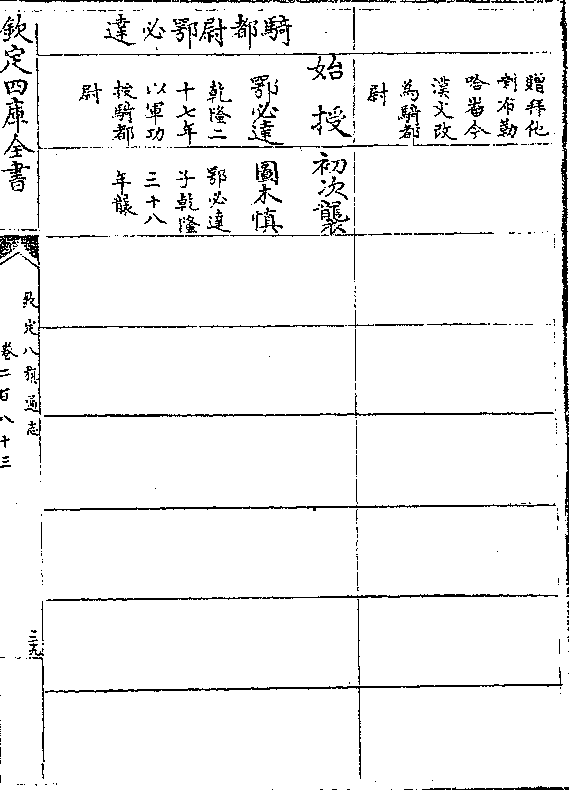 贈拜他
喇布勒
哈畨今
漢文改
為騎都
尉
騎都尉鄂必達
始授
鄂必達
乾隆二
十七年
以軍功
授騎都
尉
初次襲
圖木慎
鄂必達
子乾隆
三十八
年襲
欽定四庫全書
欽定八旗通志
卷二百八十三
三九